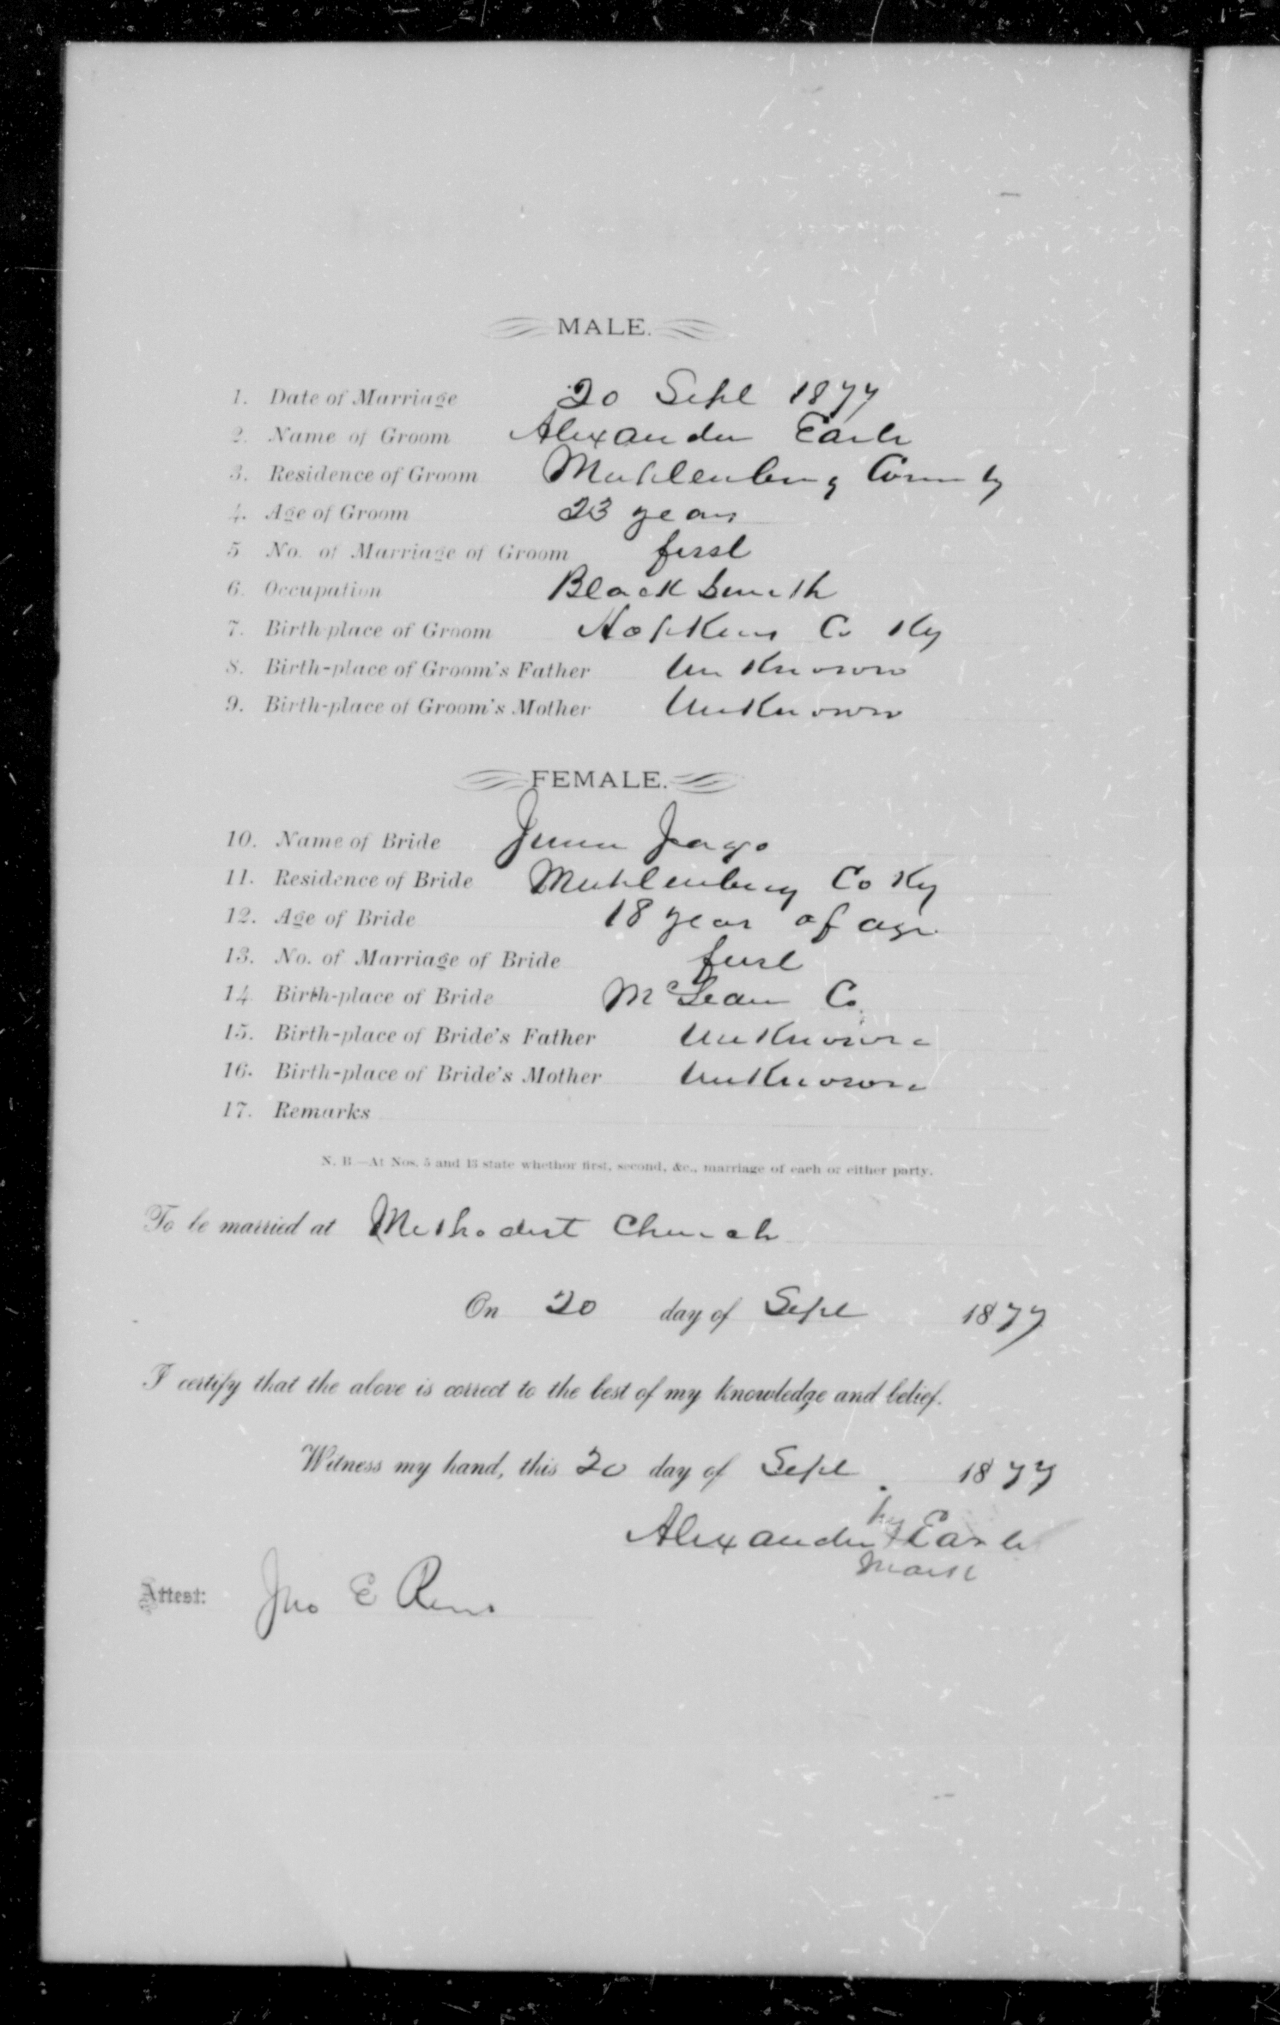 MALE.
1. Date of Marriage 20 Sept 1877
2. Name of Groom Alexander Earle
3. Residence of Groom Muhlenberg County
4. Age of Groom 23 years
5 No. of Marriage of Groom first
6. Occupation Black Smith
7. Birth-place of Groom Hopkins Co Ky
8. Birth-place of Groom's Father Unknown
9. Birth-place of Groom's Mother Unknown
FEMALE.
10. Name of Bride Jago
11. Residence of Bride Muhlenberg Co Ky
12. Age of Bride 18 year of age
13. No. of Marriage of Bride first
14. Birth-place of Bride McLean Co.
15. Birth-place of Bride's Father Unknown
16. Birth-place of Bride's Mother Unknown
17. Remarks
N. B.—At Nos. 5 and 13 state whether first, second, &c., marriage of each or either party.
To be married at Methodist Church
On 20 day of Sept 1877
I certify that the above is correct to the best of my knowledge and belief.
Witness my hand, this 20 day of Sept. 1877
his
Alexander X Earle
mark
Attest: Jno E Reno